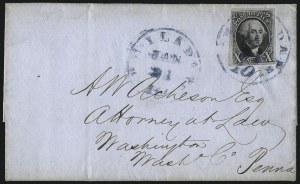 PHILADA
JAN
21
10
A W Acheson Esq
Attorney at Law
Washington
Wash. Co
Penna